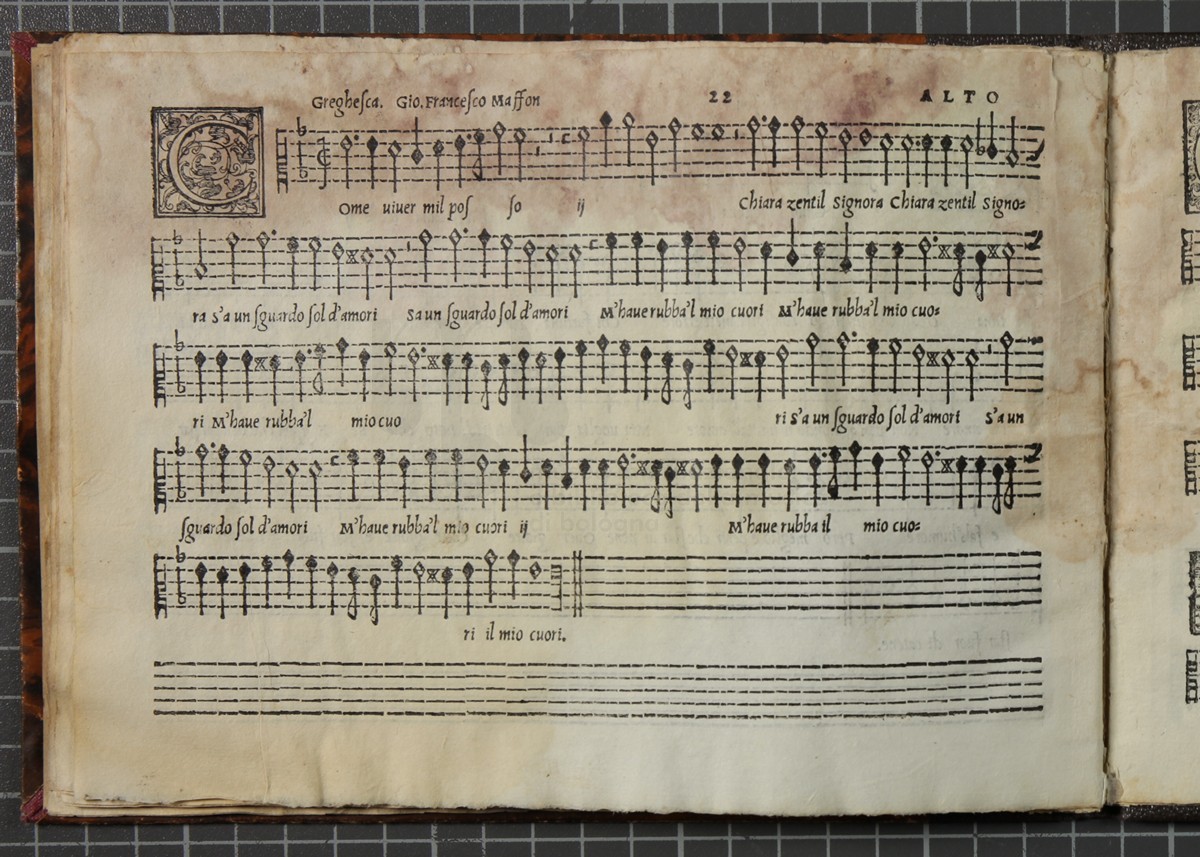 Greghesca. Gio. Francesco Masson 22 ALTO
C
Ome viuer mil pos so ij Chiara zentil Signora Chiara zentil Signo=
ra S'a un sguardo sol d'amori Sa un sguardo sol d'amori M'haue rubba'l mio cuori M'haue rubba'l mio cuo=
ri M'haue rubba'l mio cuo ri S'a un sguardo sol d'amori S'a un
sguardo sol d'amori M'haue rubba'l mio cuori ij M'haue rubba il mio cuo=
ri il mio cuori.